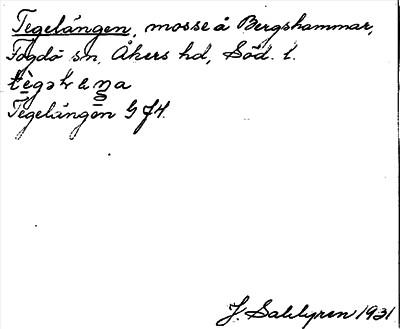 Tegelängen, mosse å Bergshammar,
Fogdö sn, Åkers hd, Söd. l.
Tegelängen G J4.
J. Sahlgren 1931